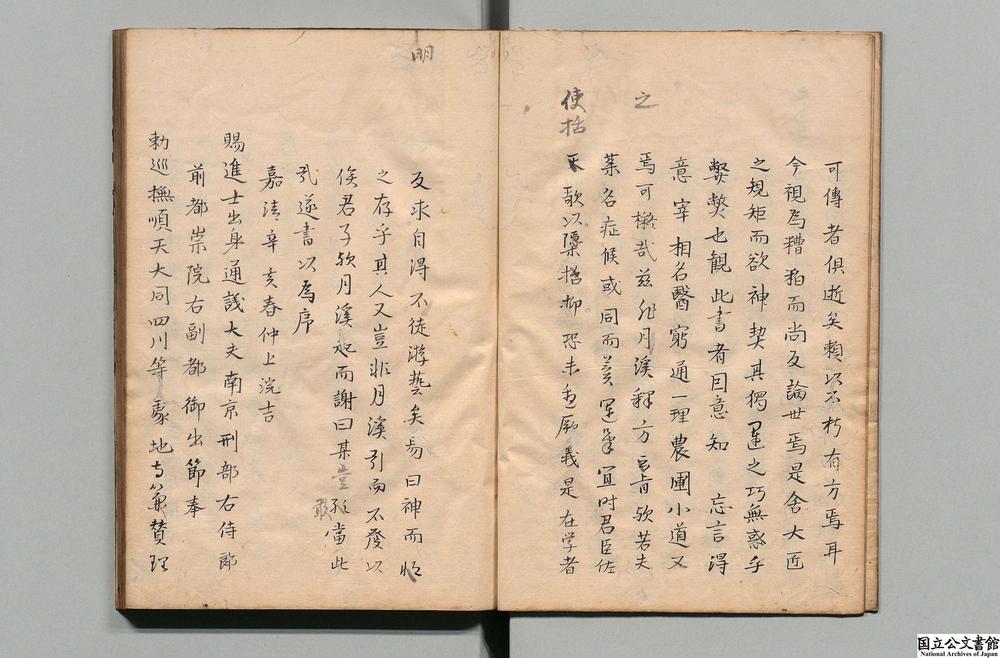 可傳者俱逝矣賴以不朽有方焉耳
今視為糟粕而尚友論世焉是舍大匠
之規矩而欲神契其獨運之巧無惑乎
弊弊也觀此書者因意知 忘言得
意宰相名醫窮通一理農圃小道又
之
焉可擬哉茲非月溪釋方言肯欤若夫
藥名症候或同而異運筆宜时君臣佐
使括
歌以隱括抑恐未盡厥義是在学者
明
反求自得不徒游藝矣易曰神而
之存乎其人又豈非月溪引而不發以
俟君子欤月溪起而謝曰某豈敢當此
敢
哉遂書以為序
嘉清辛亥春仲上浣吉
賜進士出身通議大夫南京刑部右侍郎
前都崇院右副都御出節奉
勅巡撫順天大同四川等處地方兼賛理
国立公文書館
National Archives of Japan